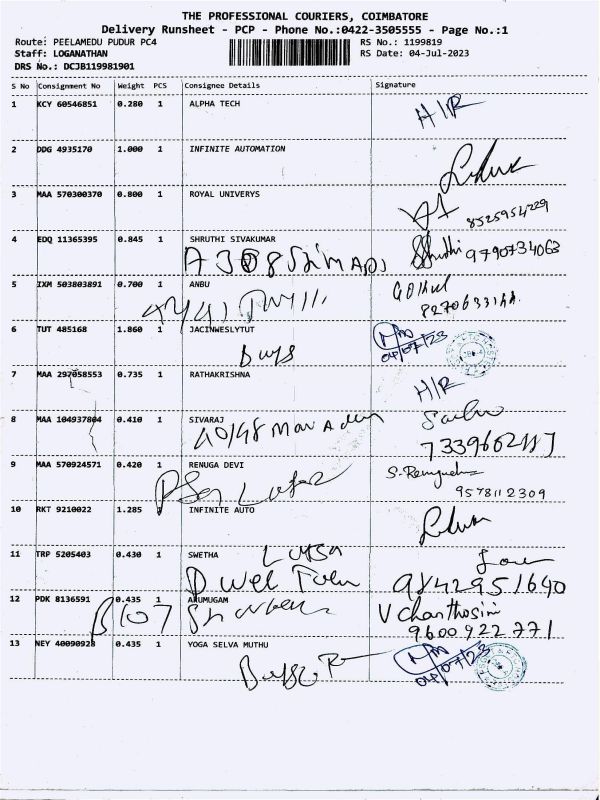 THE PROFESSIONAL COURIERS, COIMBATORE
Delivery Runsheet - PCP - Phone No.:0422-3505555 - Page No.:1
Route: PEELAMEDU PUDUR PC4
RS No.: 1199819
Staff: LOGANATHAN
RS Date: 04-Jul-2023
DRS No.: DCJB119981901
S No Consignment No Weight PCS Consignee Details Signature
1 KCY 60546851 0.280 1 ALPHA TECH
H/R
2 DDG 4935170 1.000 1 INFINITE AUTOMATION
3 MAA 570300370 0.800 1 ROYAL UNIVERYS
8525954229
4 EDQ 11365395 0.845 1 SHRUTHI SIVAKUMAR
Shruthi 9790734063
5 IXM 503803891 0.700 1 ANBU
Gokul
6 TUT 485168 1.860 1 JACINWESLYTUT
04/07/23
7 MAA 297058553 0.735 1 RATHAKRISHNA
H/R
8 MAA 104937804 0.410 1 SIVARAJ
9 MAA 570924571 0.420 1 RENUGA DEVI
9578112309
10 RKT 9210022 1.285 INFINITE AUTO
11 TRP 5205403 0.430 1 SWETHA
9842951640
12 PDK 8136591 0.435 1 ARUMUGAM
B107
V Chanthosini
9600922771
13 NEY 40090928 0.435 1 YOGA SELVA MUTHU
04/07/23